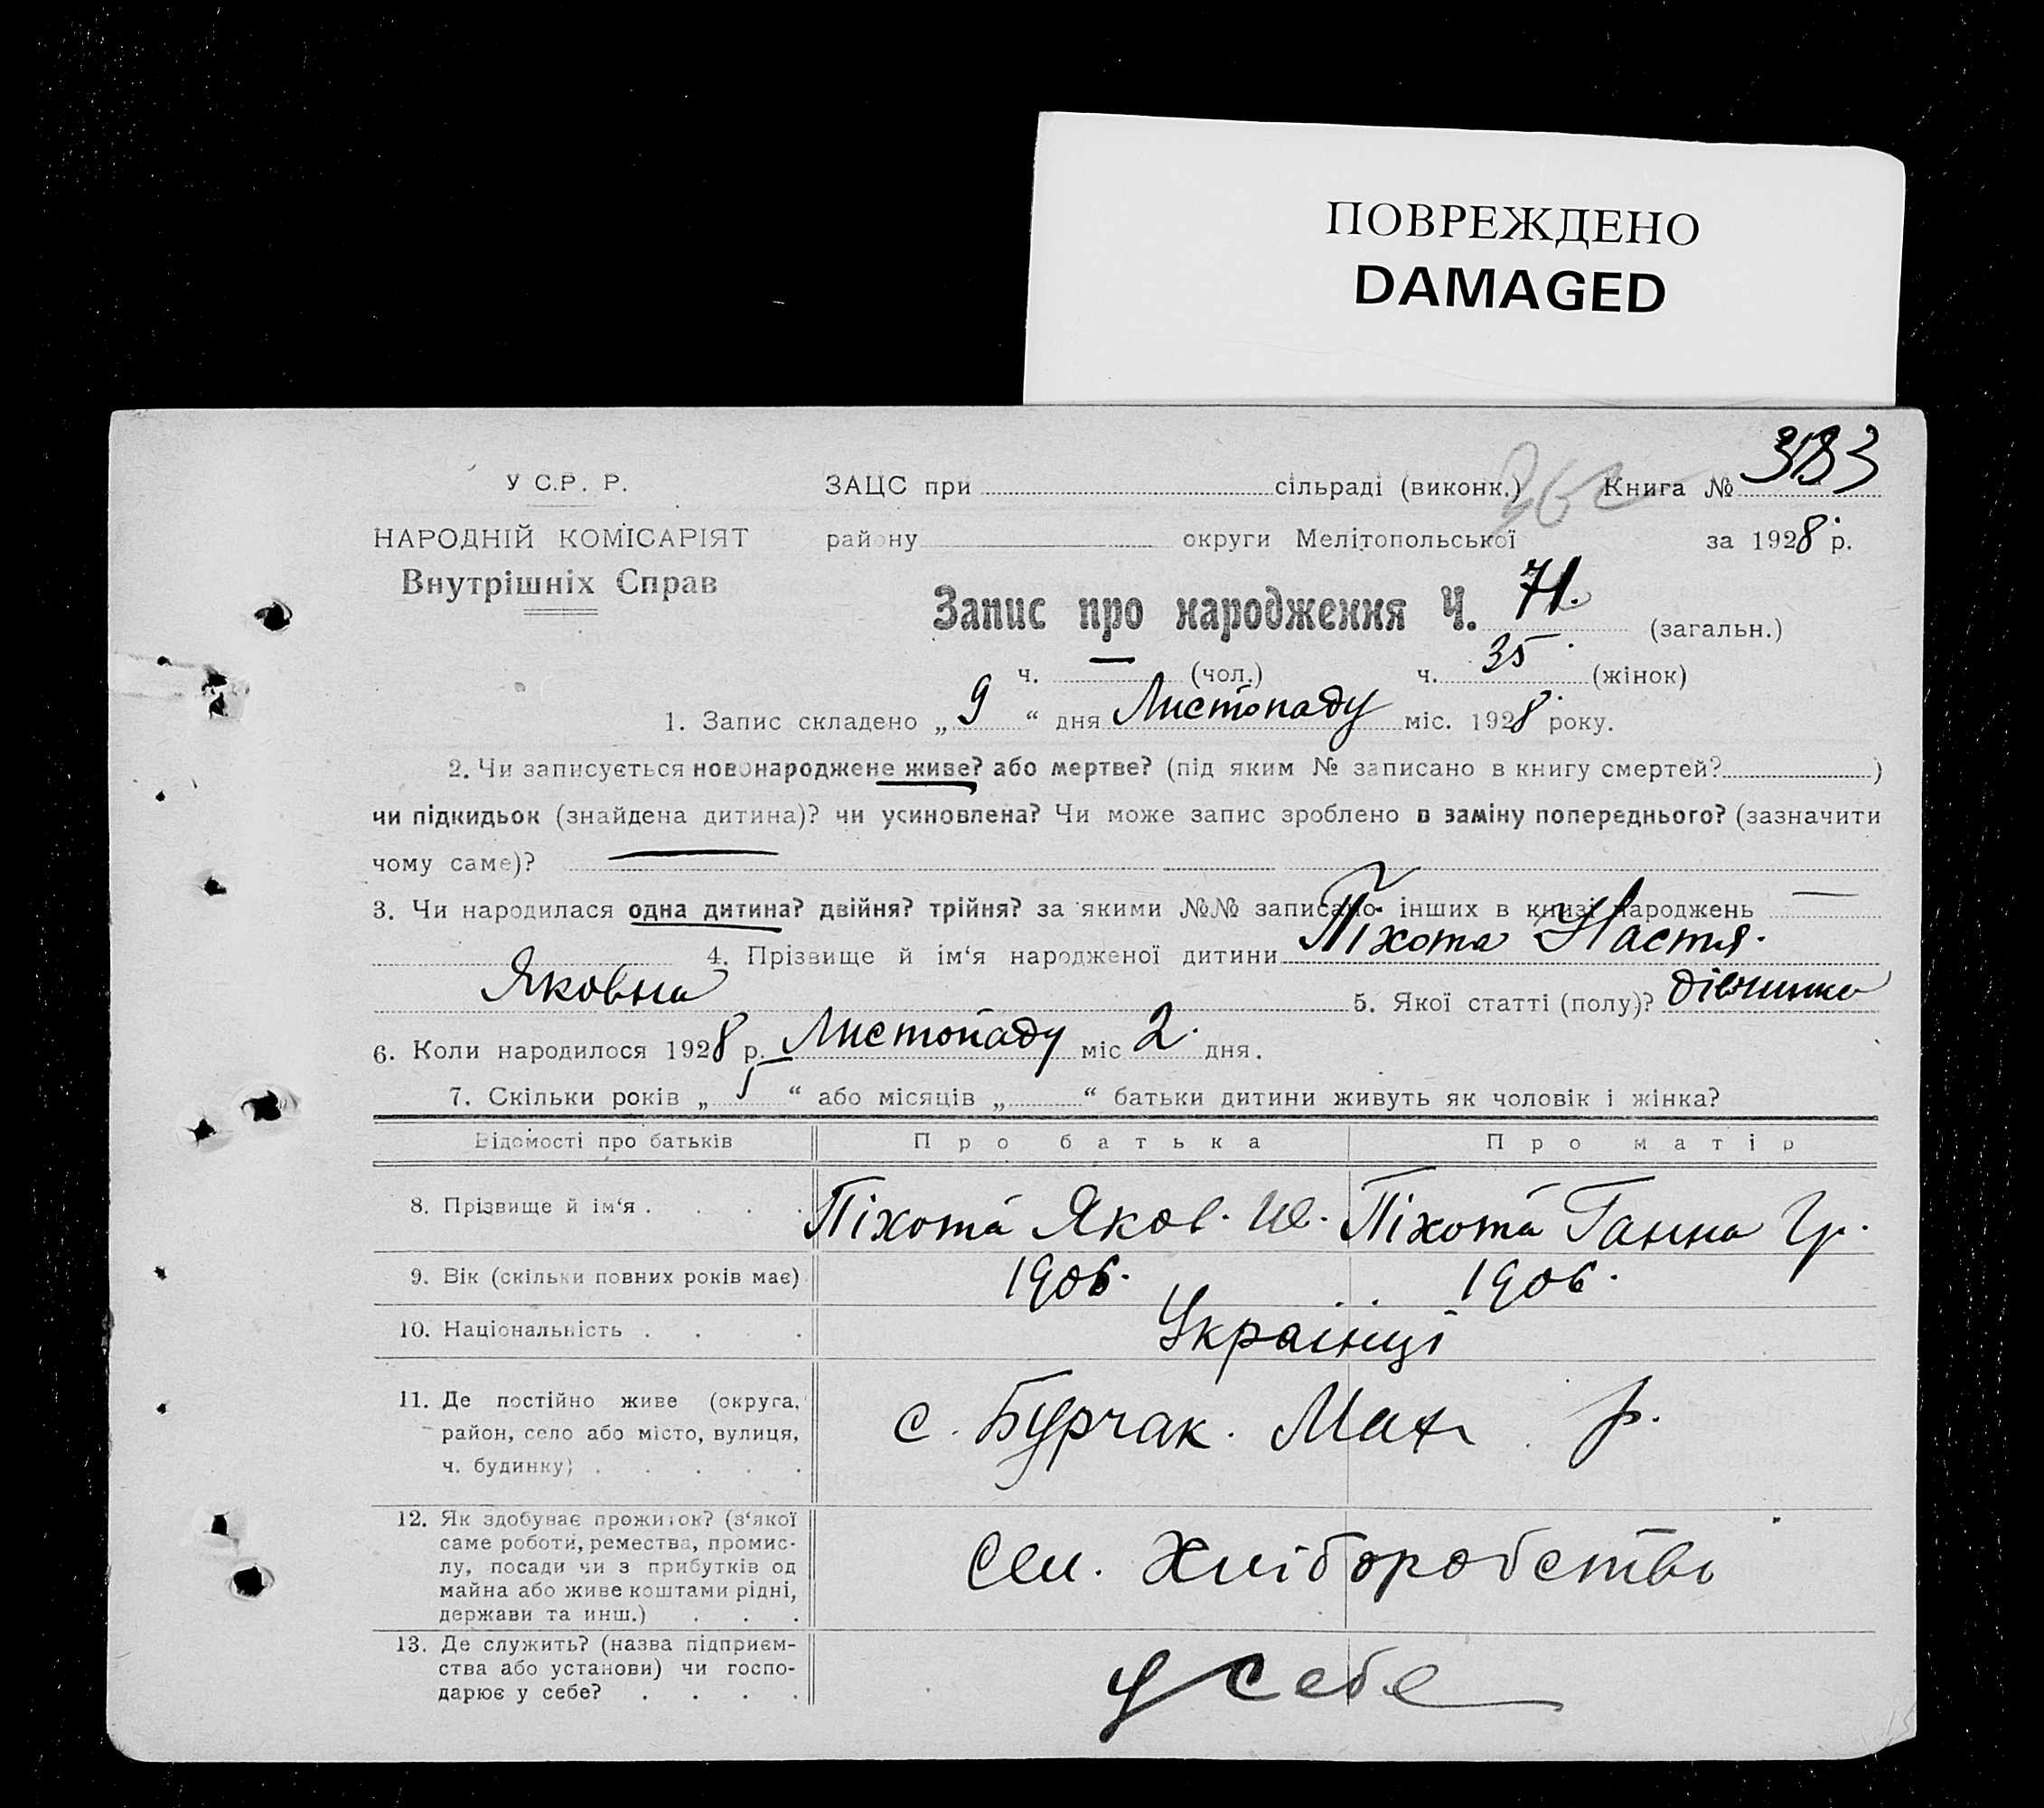 ПОВРЕЖДЕНО
DAMAGED
У С.Р. Р. ЗАЦС при сільраді (виконк.) Книга № 3183
НАРОДНІЙ КОМІСАРІЯТ району округи Мелітопольської за 1928 р.
Внутрішніх Справ
Запис про народження Ч. 71. (загальн.)
ч. — (чол.) ч. 35 (жінок)
1. Запис складено „ 9 “ дня Листопаду міс. 1928 року.
2. Чи записується новонароджене живе? або мертве? (під яким № записано в книгу смертей? )
чи підкидьок (знайдена дитина)? чи усиновлена? Чи може запис зроблено в заміну попереднього? (зазначити
чому саме)? —
3. Чи народилася одна дитина? двійня? трійня? за якими №№ записано інших в книзі народжень —
4. Прізвище й ім‘я народженої дитини Піхота Настя.
Яковна 5. Якої статті (полу)? дівчинка
6. Коли народилося 1928 р. Листопаду міс 2. дня.
7. Скільки років „ 5 “ або місяців „ “ батьки дитини живуть як чоловік і жінка?
Відомості про батьків Про батька Про матір
8. Прізвище й ім‘я . . . . Піхота Яков. Піхота Ганна Гр.
9. Вік (скільки повних років має) 1906. 1906.
10. Національність . . . . Українці
11. Де постійно живе (округа,
район, село або місто, вулиця,
ч. будинку) . . . . .
с. Бурчак. р.
12. Як здобуває прожиток? (з‘якої
саме роботи, ремества, промис-
лу, посади чи з прибутків од
майна або живе коштами рідні,
держави та инш.) . . .
Хліборобство
13. Де служить? (назва підприєм-
ства або установи) чи госпо-
дарює у себе? . . . .
у себе